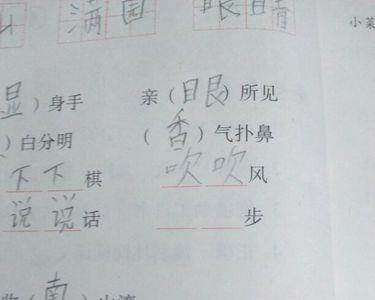 山 满园 眼睛
小菜
显）身手 亲（眼）所见
）白分明 （香）气扑鼻
下下棋 吹吹风
说说话 步
（南）